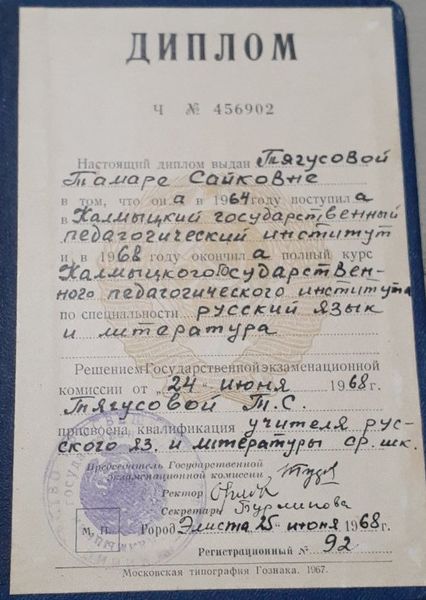 ДИПЛОМ
Ч № 456902
Настоящий диплом выдан Тягусовой
Тамаре Сайковне
в том, что она в 1964 году поступила
в Калмыцкий государственный
педагогический институт
и в 1968 году окончила полный курс
Калмыцкого государствен-
ного педагогического института
по специальности русский язык
и литература
Решением Государственной экзаменационной
комиссии от „24“ июня 1968 г.
Тягусовой Т.С.
присвоена квалификация учителя рус-
ского яз. и литературы ср. шк.
Председатель Государственной
экзаменационной комиссии
Ректор
Секретарь
М. П. Город Элиста 25 июня 1968 г.
Регистрационный № 92
Московская типография Гознака. 1967.